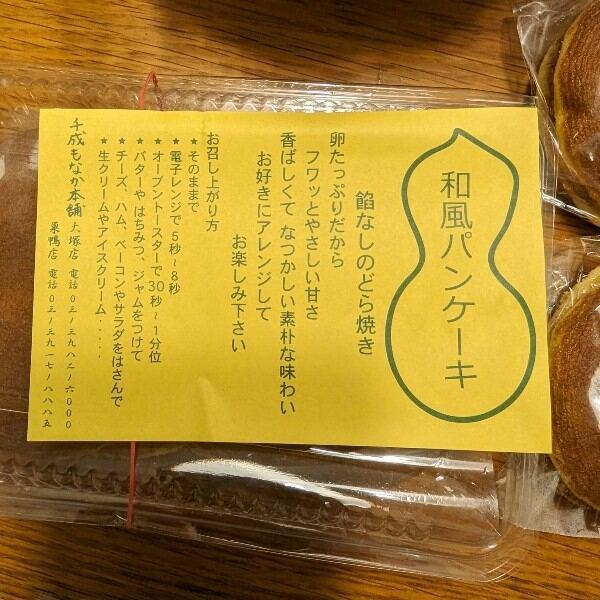 和風パンケーキ
餡なしのどら焼き
卵たっぷりだから
フワッとやさしい甘さ
香ばしくて なつかしい素朴な味わい
お好きにアレンジして
お楽しみ下さい
お召し上がり方
★ そのままで
★ 電子レンジで 5秒~8秒
★ オーブントースターで 30秒~1分位
★ バターや はちみつ、ジャムをつけて
★ チーズ、ハム、ベーコンやサラダをはさんで
★ 生クリームやアイスクリーム・・・・・
千成もなか本舗 大塚店 電話 03/3982/6000
巣鴨店 電話 03/3917/8885